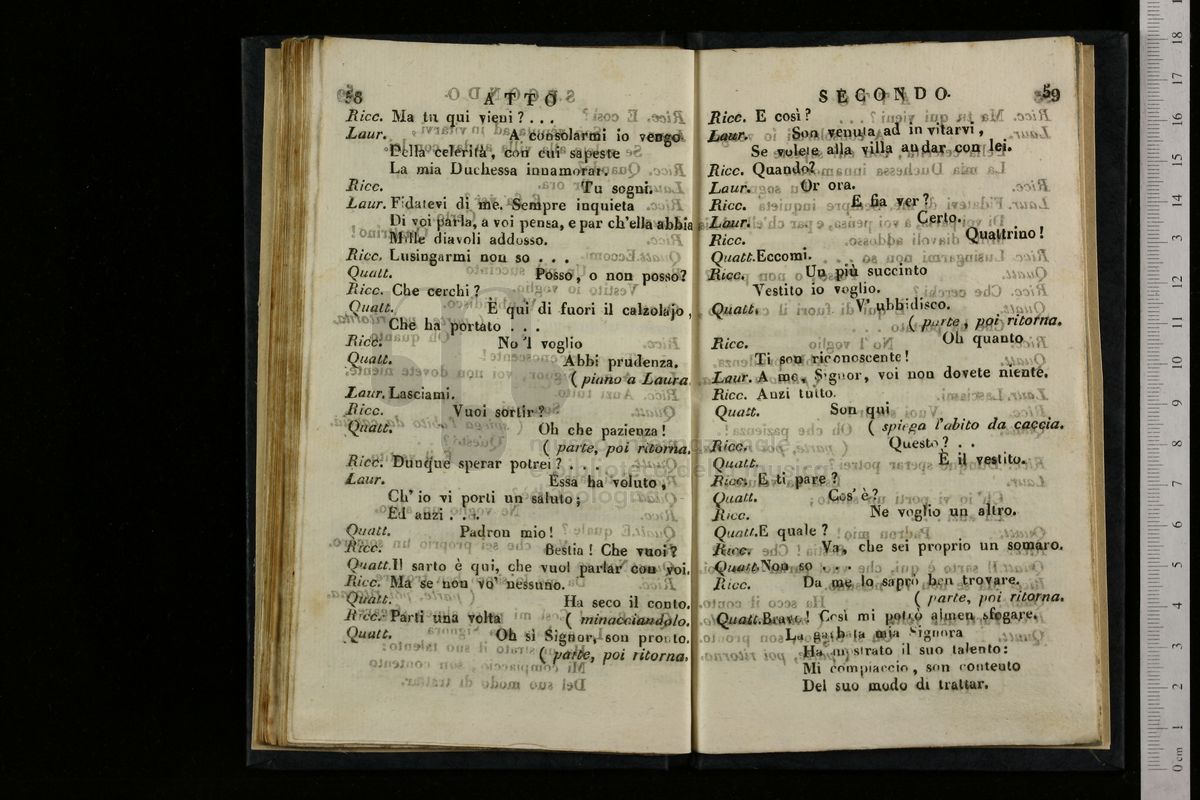 58 ATTO
Ricc. Ma tu qui vieni? . . .
Laur. A consolarmi io vengo
Della celerità, con cui sapeste
La mia Duchessa innamorar.
Ricc. Tu sogni.
Laur. Fidatevi di me. Sempre inquieta
Di voi parla, a voi pensa, e par ch'ella abbia
Mille diavoli addosso.
Ricc. Lusingarmi non so . . .
Quatt. Posso, o non posso?
Ricc. Che cerchi?
Quatt. È qui di fuori il calzolajo,
Che ha portato . . .
Ricc. No 'l voglio
Quatt. Abbi prudenza.
( piano a Laura
Laur. Lasciami.
Ricc. Vuoi sortir?
Quatt. Oh che pazienza!
( parte, poi ritorna.
Ricc. Dunque sperar potrei? . . .
Laur. Essa ha voluto,
Ch' io vi porti un saluto;
Ed anzi . . .
Quatt. Padron mio!
Ricc. Bestia! Che vuoi?
Quatt. Il sarto è qui, che vuol parlar con voi.
Ricc. Ma se non vo' nessuno.
Quatt. Ha seco il conto.
Ricc. Parti una volta ( minacciandolo.
Quatt. Oh si Signor, son pronto.
( parte, poi ritorna.
SECONDO. 59
Ricc. E così?
Laur. Son venuta ad invitarvi,
Se volete alla villa andar con lei.
Ricc. Quando?
Laur. Or ora.
Ricc. E fia ver?
Laur. Certo.
Ricc. Quattrino!
Quatt. Eccomi.
Ricc. Un più succinto
Vestito io voglio.
Quatt. V' ubbidisco.
( parte, poi ritorna.
Ricc. Oh quanto
Ti son riconoscente!
Laur. A me, Signor, voi non dovete niente.
Ricc. Anzi tutto.
Quatt. Son qui
( spiega l'abito da caccia.
Ricc. Questo? . .
Quatt. È il vestito.
Ricc. E ti pare?
Quatt. Cos' è?
Ricc. Ne voglio un altro.
Quatt. E quale?
Ricc. Va, che sei proprio un somaro.
Quatt. Non so . . .
Ricc. Da me lo saprò ben trovare.
( parte, poi ritorna.
Quatt. Bravo! Così mi potrò almen sfogare.
La garbata mia Signora
Ha mostrato il suo talento:
Mi compiaccio, son contento
Del suo modo di trattar.
museo internazionale
biblioteca della musica
di bologna
0 cm 1 2 3 4 5 6 7 8 9 10 11 12 13 14 15 16 17 18